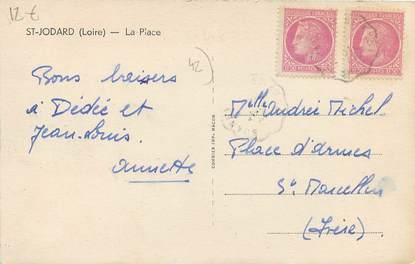 12€
ST-JODARD (Loire) — La Place
42
Bons baisers
à Dédée et
Jean-Louis.
Annette
COMBIER IMP. MACON
Mlle Andrée Michel
Place d'Armes
St Marcellin
(Isère)